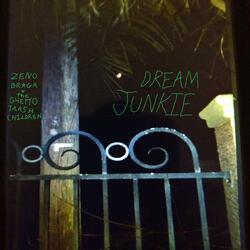 ZENO
BRAGA
+ THE
GHETTO
TRASH
CHILDREN
DREAM
JUNKIE